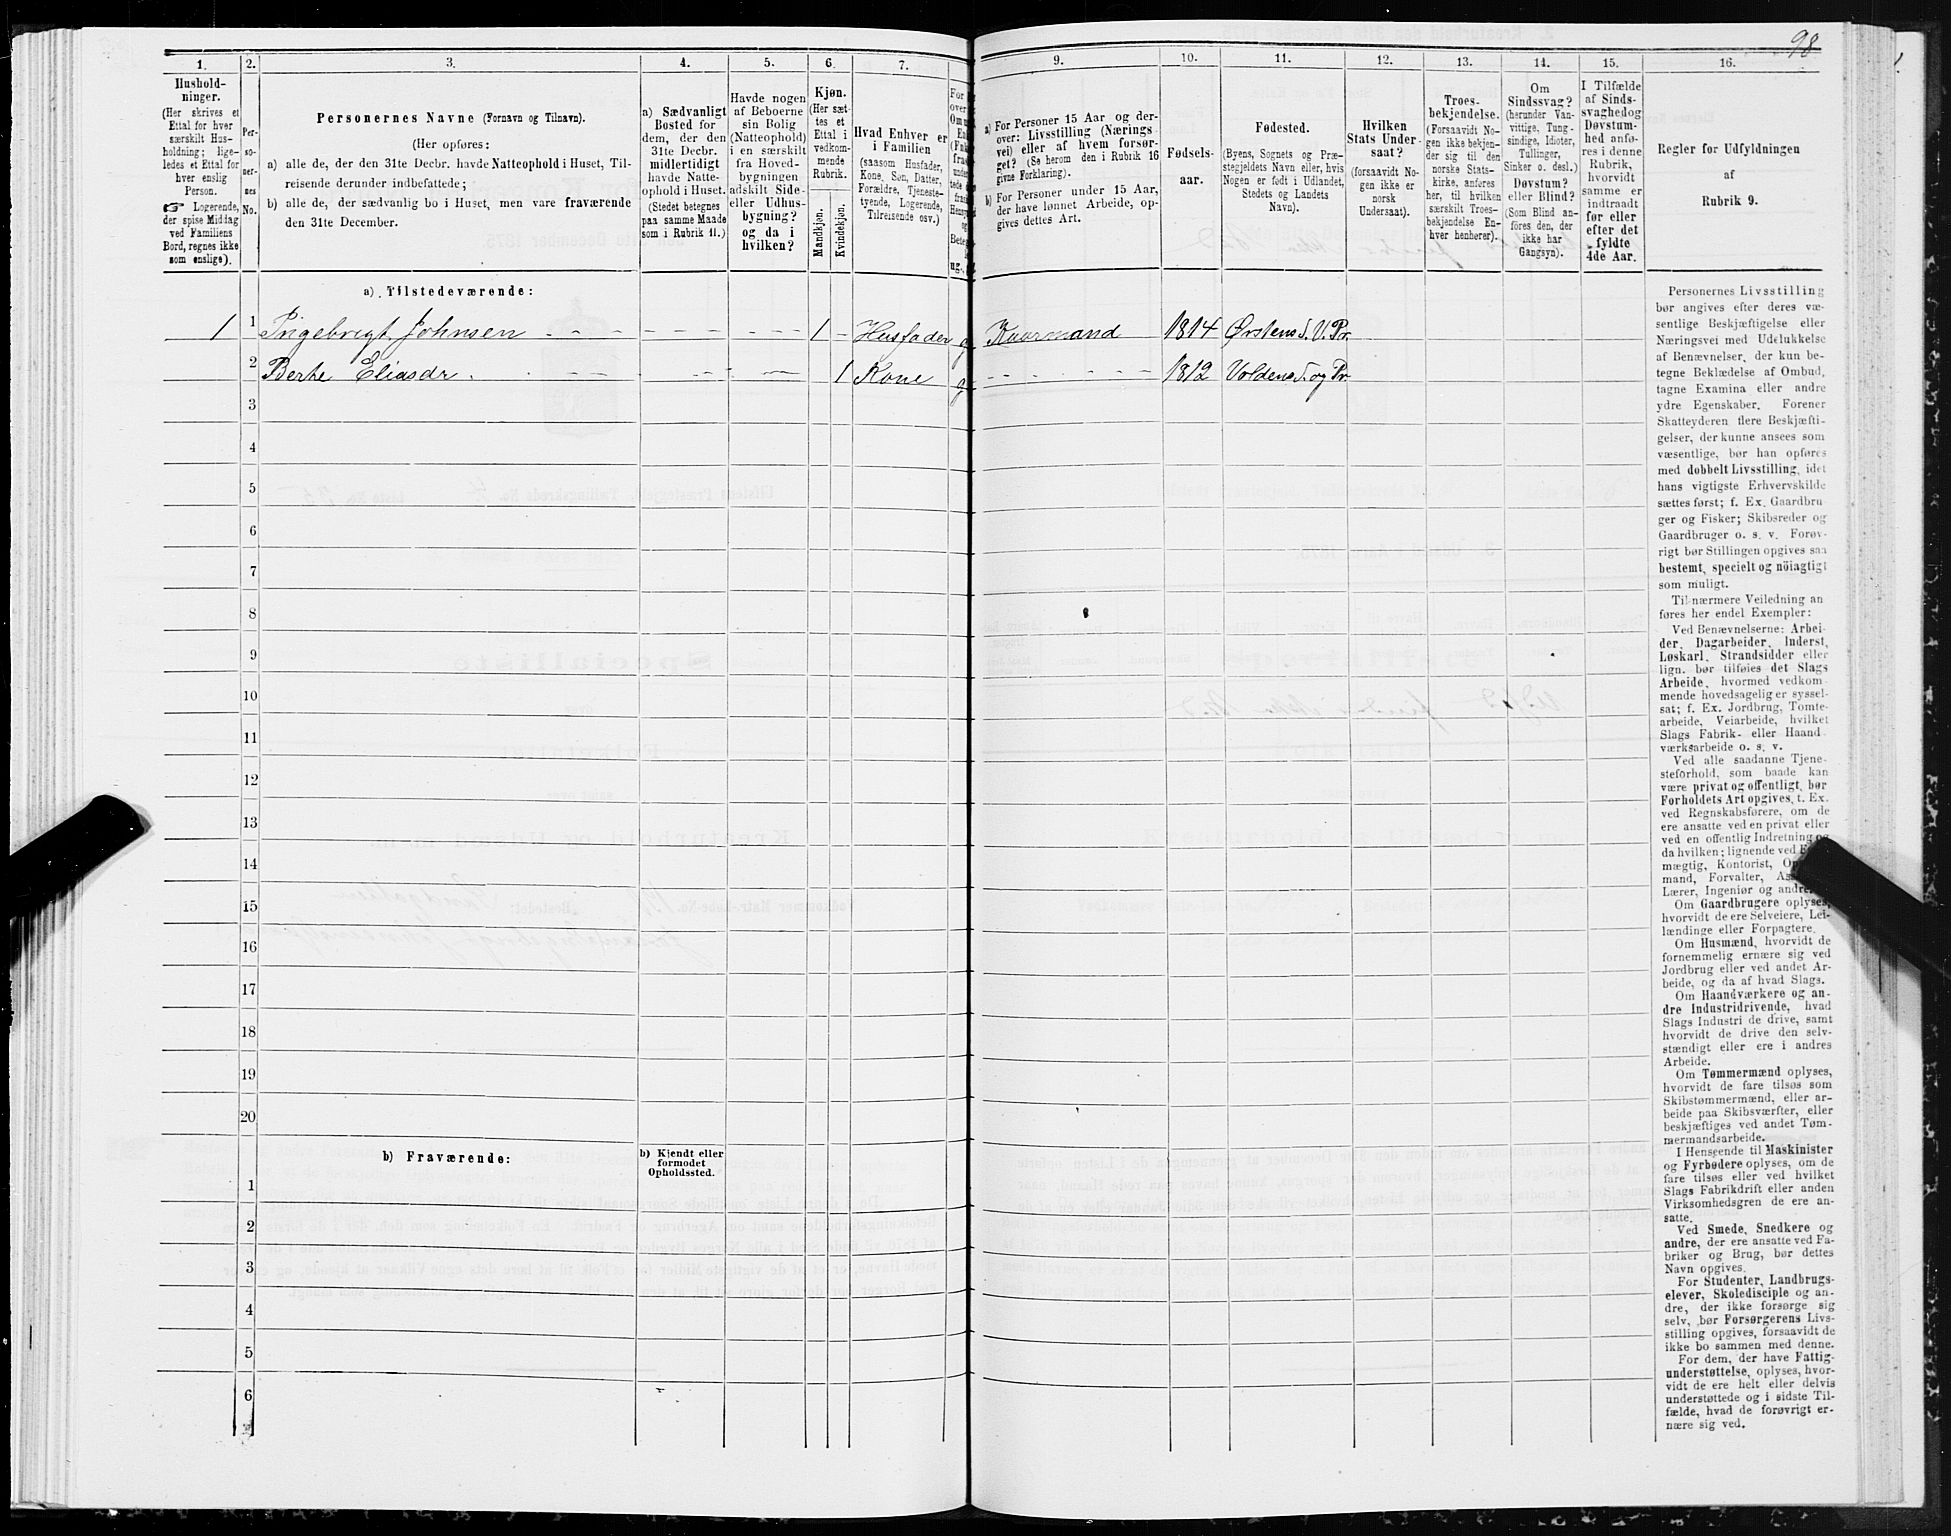 98
1.
Hushold-
ninger.
(Her skrives et
Ettal for hver
særskilt Hus-
holdning; lige-
ledes et Ettal for
hver enslig
Person.
☞ Logerende,
der spise Middag
ved Familiens
Bord, regnes ikke
som enslige).
2.
Per-
so-
ner-
nes
No.
3.
Personernes Navne (Fornavn og Tilnavn).
(Her opføres:
a) alle de, der den 31te Decbr. havde Natteophold i Huset, Til-
reisende derunder indbefattede;
b) alle de, der sædvanlig bo i Huset, men vare fraværende
den 31te December.
4.
a) Sædvanligt
Bosted for
dem, der den
31te Decbr.
midlertidigt
havde Natte-
ophold i Huset.
(Stedet betegnes
paa samme Maade
som i Rubrik 11.)
5.
Havde nogen
af Beboerne
sin Bolig
(Natteophold)
i en særskilt
fra Hoved-
bygningen
adskilt Side-
eller Udhus-
bygning?
og da i
hvilken?
6.
Kjøn.
(Her sæt-
tes et
Ettal i
vedkom-
mende
Rubrik.
Mandkjøn.
Kvindekjøn.
7.
Hvad Enhver er
i Familien
(saasom Husfader,
Kone, Søn, Datter,
Forældre, Tjeneste-
tyende, Logerende,
Tilreisende osv.)
9.
a) For Personer 15 Aar og der-
over: Livsstilling (Nærings-
vei) eller af hvem forsør-
get? (Se herom den i Rubrik 16
givne Forklaring).
b) For Personer under 15 Aar,
der have lønnet Arbeide, op-
gives dettes Art.
10.
Fødsels-
aar.
11.
Fødested.
(Byens, Sognets og Præ-
stegjeldets Navn eller, hvis
Nogen er født i Udlandet,
Stedets og Landets
Navn).
12.
Hvilken
Stats Under-
saat?
(forsaavidt No-
gen ikke er
norsk
Undersaat).
13.
Troes-
bekjendelse.
(Forsaavidt No-
gen ikke bekjen-
der sig til den
norske Stats-
kirke, anføres
her, til hvilken
særskilt Troes-
bekjendelse En-
hver henhører).
14.
Om
Sindssvag?
(herunder Van-
vittige, Tung-
sindige, Idioter,
Tullinger,
Sinker o. desl.)
Døvstum?
eller Blind?
(Som Blind an-
føres den, der
ikke har
Gangsyn).
15.
I Tilfælde
af Sinds-
svaghed og
Døvstum-
hed anfø-
res i denne
Rubrik,
hvorvidt
samme er
indtraadt
før eller
efter det
fyldte
4de Aar.
16.
Regler for Udfyldningen
af
Rubrik 9.
a) Tilstedeværende:
1 1 Ingebrigt Johnsen 1 Husfader g Kaarmand 1814 Ørstens S. V. Pr.
2 Berte Eliasdr 1 Kone g 1812 Voldens S. og Pr.
3
4
5
6
7
8
9
10
11
12
13
14
15
16
17
18
19
20
b) Fraværende:
b) Kjendt eller
formodet
Opholdssted.
1
2
3
4
5
6
Personernes Livsstilling
bør angives efter deres væ-
sentlige Beskjæftigelse eller
Næringsvei med Udelukkelse
af Benævnelser, der kun be-
tegne Beklædelse af Ombud,
tagne Examina eller andre
ydre Egenskaber. Forener
Skatteyderen flere Beskjæfti-
gelser, der kunne ansees som
væsentlige, bør han opføres
med dobbelt Livsstilling, idet
hans vigtigste Erhvervskilde
sættes først; f. Ex. Gaardbru-
ger og Fisker; Skibsreder og
Gaardbruger o. s. v. Forøv-
rigt bør Stillingen opgives saa
bestemt, specielt og nöiagtigt
som muligt.
Til nærmere Veiledning an
føres her endel Exempler:
Ved Benævnelserne: Arbei-
der, Dagarbeider, Inderst,
Løskarl, Strandsidder eller
lign. bør tilføies det Slags
Arbeide, hvormed vedkom-
mende hovedsagelig er syssel-
sat; f. Ex. Jordbrug, Tomte-
arbeide, Veiarbeide, hvilket
Slags Fabrik- eller Haand-
værksarbeide o. s. v.
Ved alle saadanne Tjene-
steforhold, som baade kan
være privat og offentligt, bør
Forholdets Art opgives, t. Ex.
ved Regnskabsførere, om de
ere ansatte ved en privat eller
ved en offentlig Indretning og
da hvilken; lignende ved
mægtig, Kontorist,
mand, Forvalter,
Lærer, Ingeniør og
Om Gaardbrugere oplyses,
hvorvidt de ere Selveiere, Lei-
lændinge eller Forpagtere.
Om Husmænd, hvorvidt de
fornemmelig ernære sig ved
Jordbrug eller ved andet Ar-
beide, og da af hvad Slags.
Om Haandværkere og an-
dre Industridrivende, hvad
Slags Industri de drive, samt
hvorvidt de drive den selv-
stændigt eller ere i andres
Arbeide.
Om Tømmermænd oplyses,
hvorvidt de fare tilsøs som
Skibstømmermænd, eller ar-
beide paa Skibsværfter, eller
beskjæftiges ved andet Tøm-
mermandsarbeide.
I Henseende til Maskinister
og Fyrbødere oplyses, om de
fare tilsøs eller ved hvilket
Slags Fabrikdrift eller anden
Virksomhedsgren de ere an-
satte.
Ved Smede, Snedkere og
andre, der ere ansatte ved Fa-
briker og Brug, bør dettes
Navn opgives.
For Studenter, Landbrugs-
elever, Skoledisciple og an-
dre, der ikke forsørge sig
selv, bør Forsørgerens Livs-
stilling opgives, forsaavidt de
ikke bo sammen med denne.
For dem, der have Fattig-
understøttelse, oplyses, hvor-
vidt de ere helt eller delvis
understøttede og i sidste Til-
fælde, hvad de forøvrigt er-
nære sig ved.